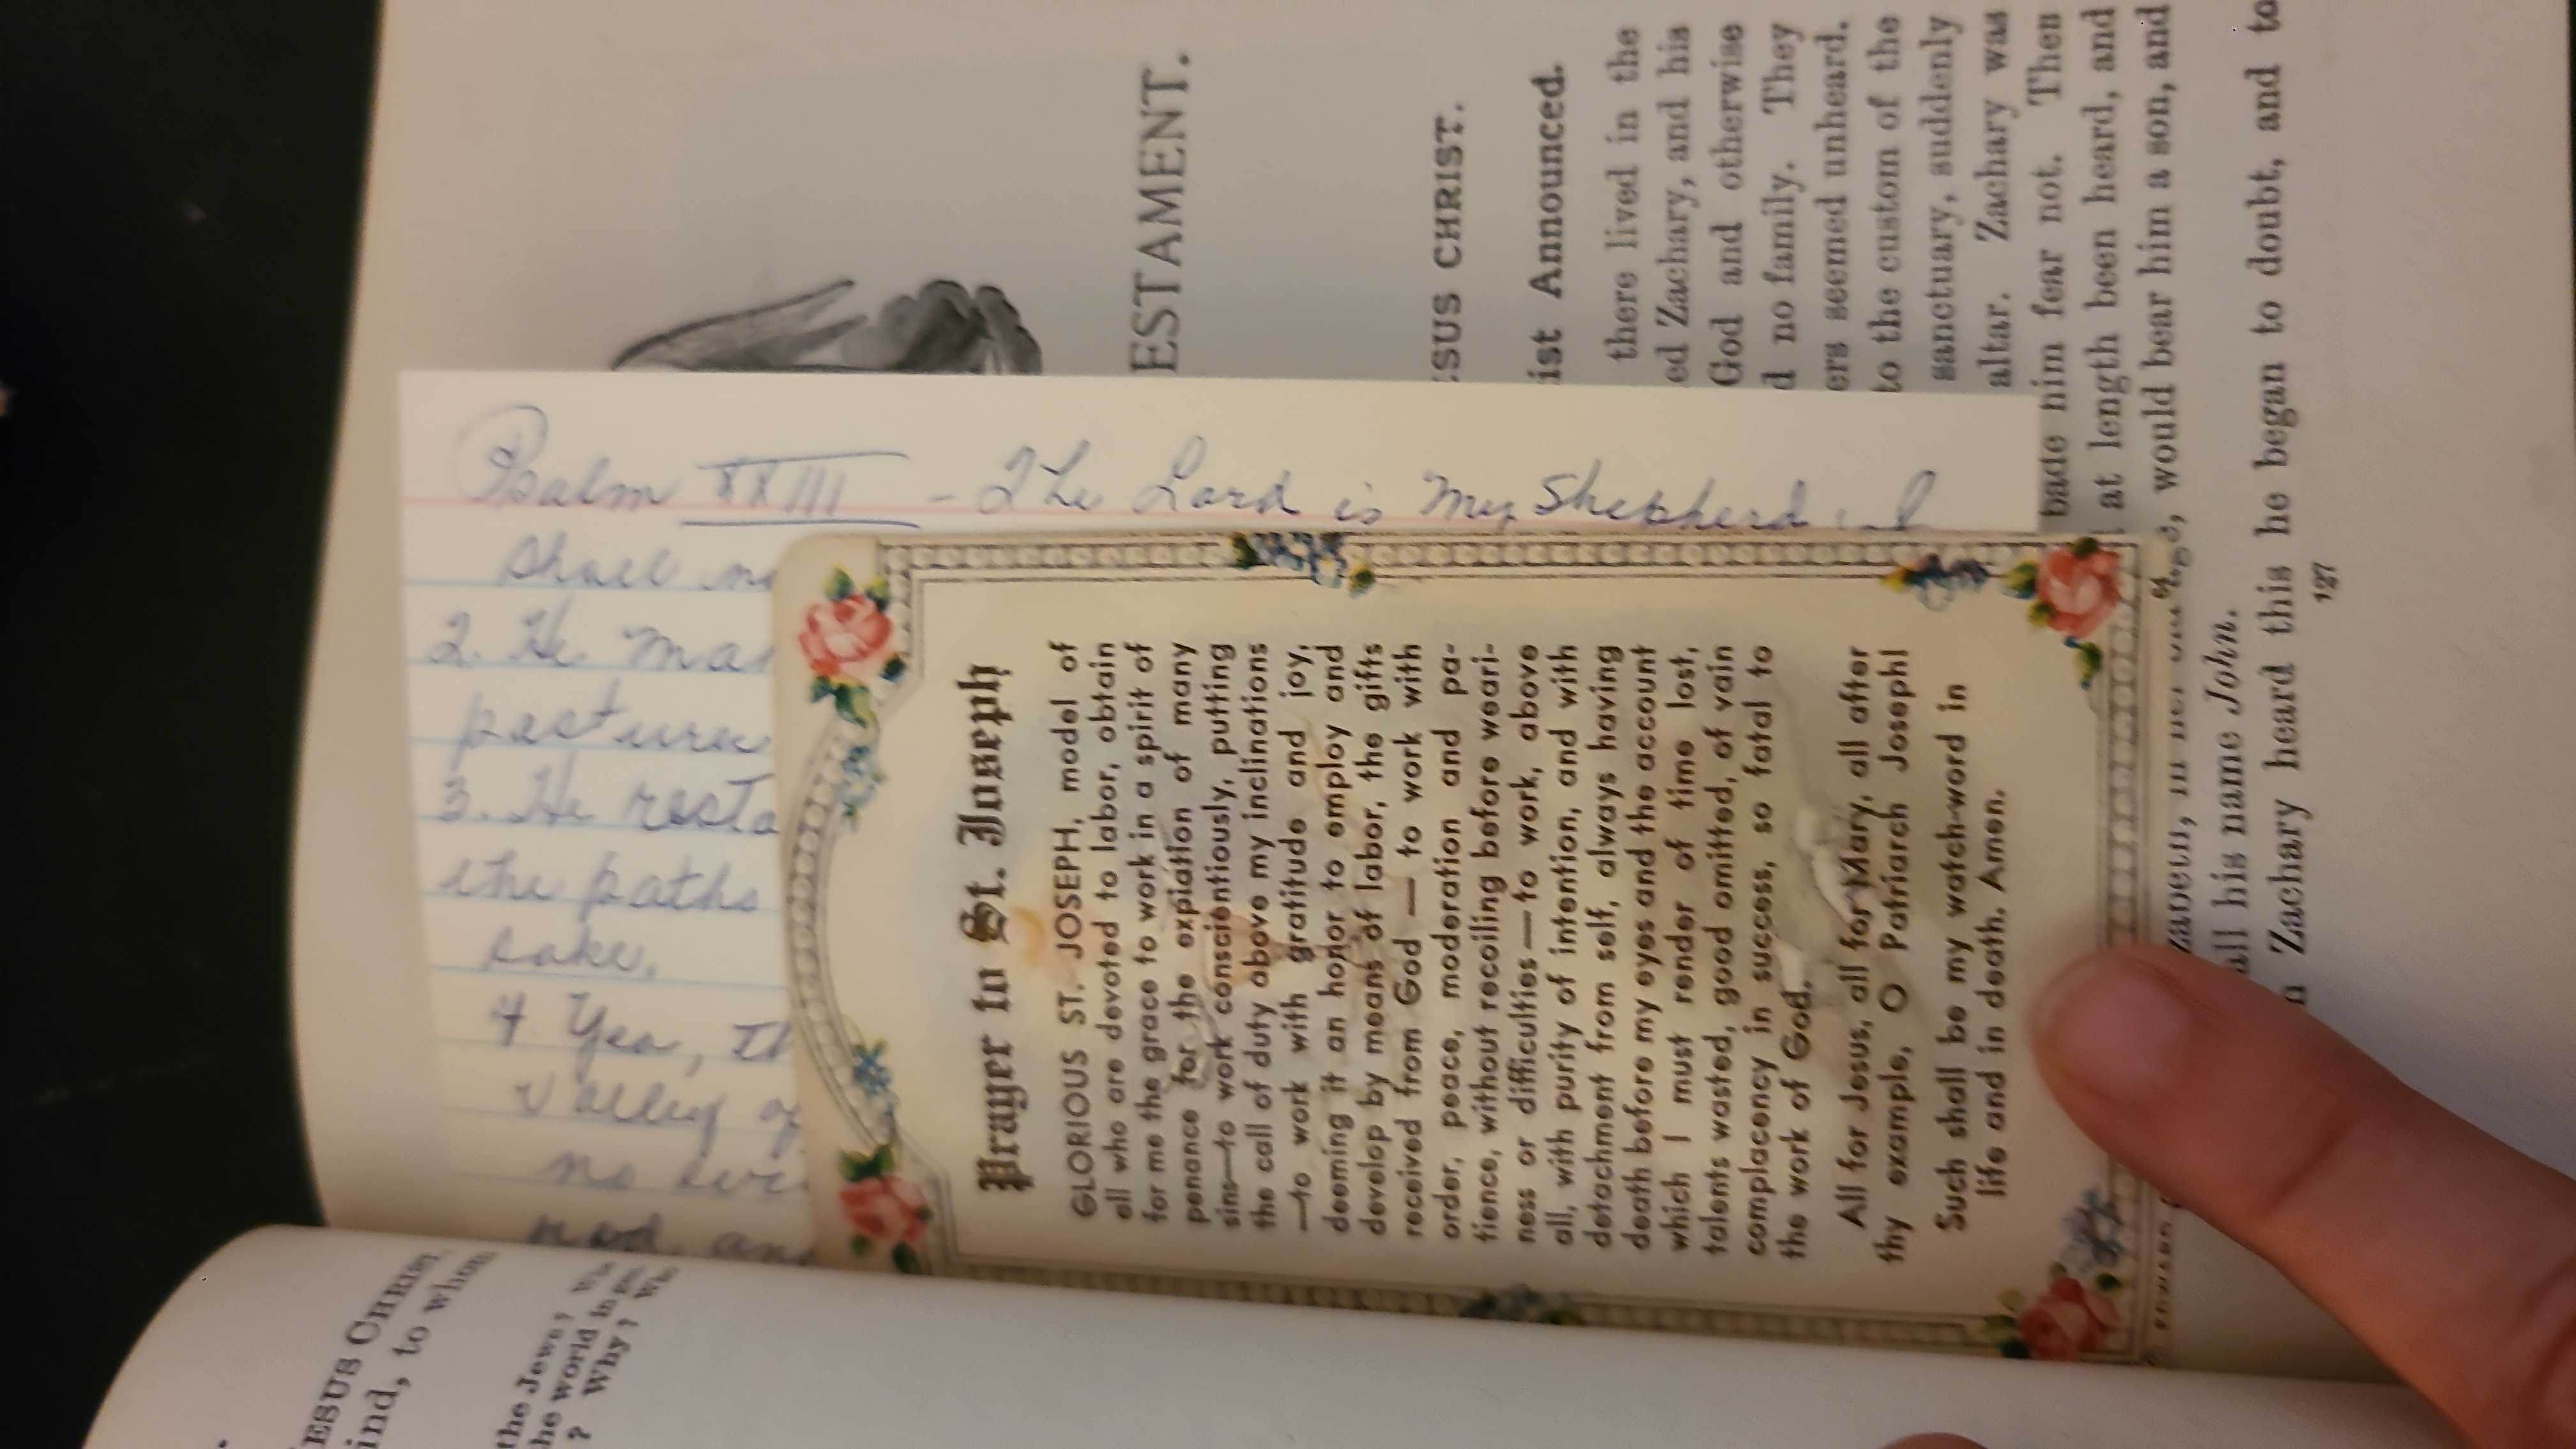 ESTAMENT.
SUS CHRIST.
ist Announced.
there lived in the
ed Zachary, and his
God and otherwise
d no family. They
ers seemed unheard.
to the custom of the
sanctuary, suddenly
altar. Zachary was
bade him fear not. Then
at length been heard, and
would bear him a son, and
all his name John.
n Zachary heard this he began to doubt, and to
127
Psalm XXIII - The Lord is my Shepherd I
shall no
2. He ma
pasture
3. He resto
the paths
sake.
4 Yea, th
valley of
no evi
rod and
Prayer to St. Joseph
GLORIOUS ST. JOSEPH, model of
all who are devoted to labor, obtain
for me the grace to work in a spirit of
penance for the expiation of many
sins—to work conscientiously, putting
the call of duty above my inclinations
—to work with gratitude and joy,
deeming it an honor to employ and
develop by means of labor, the gifts
received from God — to work with
order, peace, moderation and pa-
tience, without recoiling before weari-
ness or difficulties—to work, above
all, with purity of intention, and with
detachment from self, always having
death before my eyes and the account
which I must render of time lost,
talents wasted, good omitted, of vain
complacency in success, so fatal to
the work of God.
All for Jesus, all for Mary, all after
thy example, O Patriarch Joseph!
Such shall be my watch-word in
life and in death. Amen.
ESUS CHRIST.
ind, to whom
the Jews?
he world in
? Why?